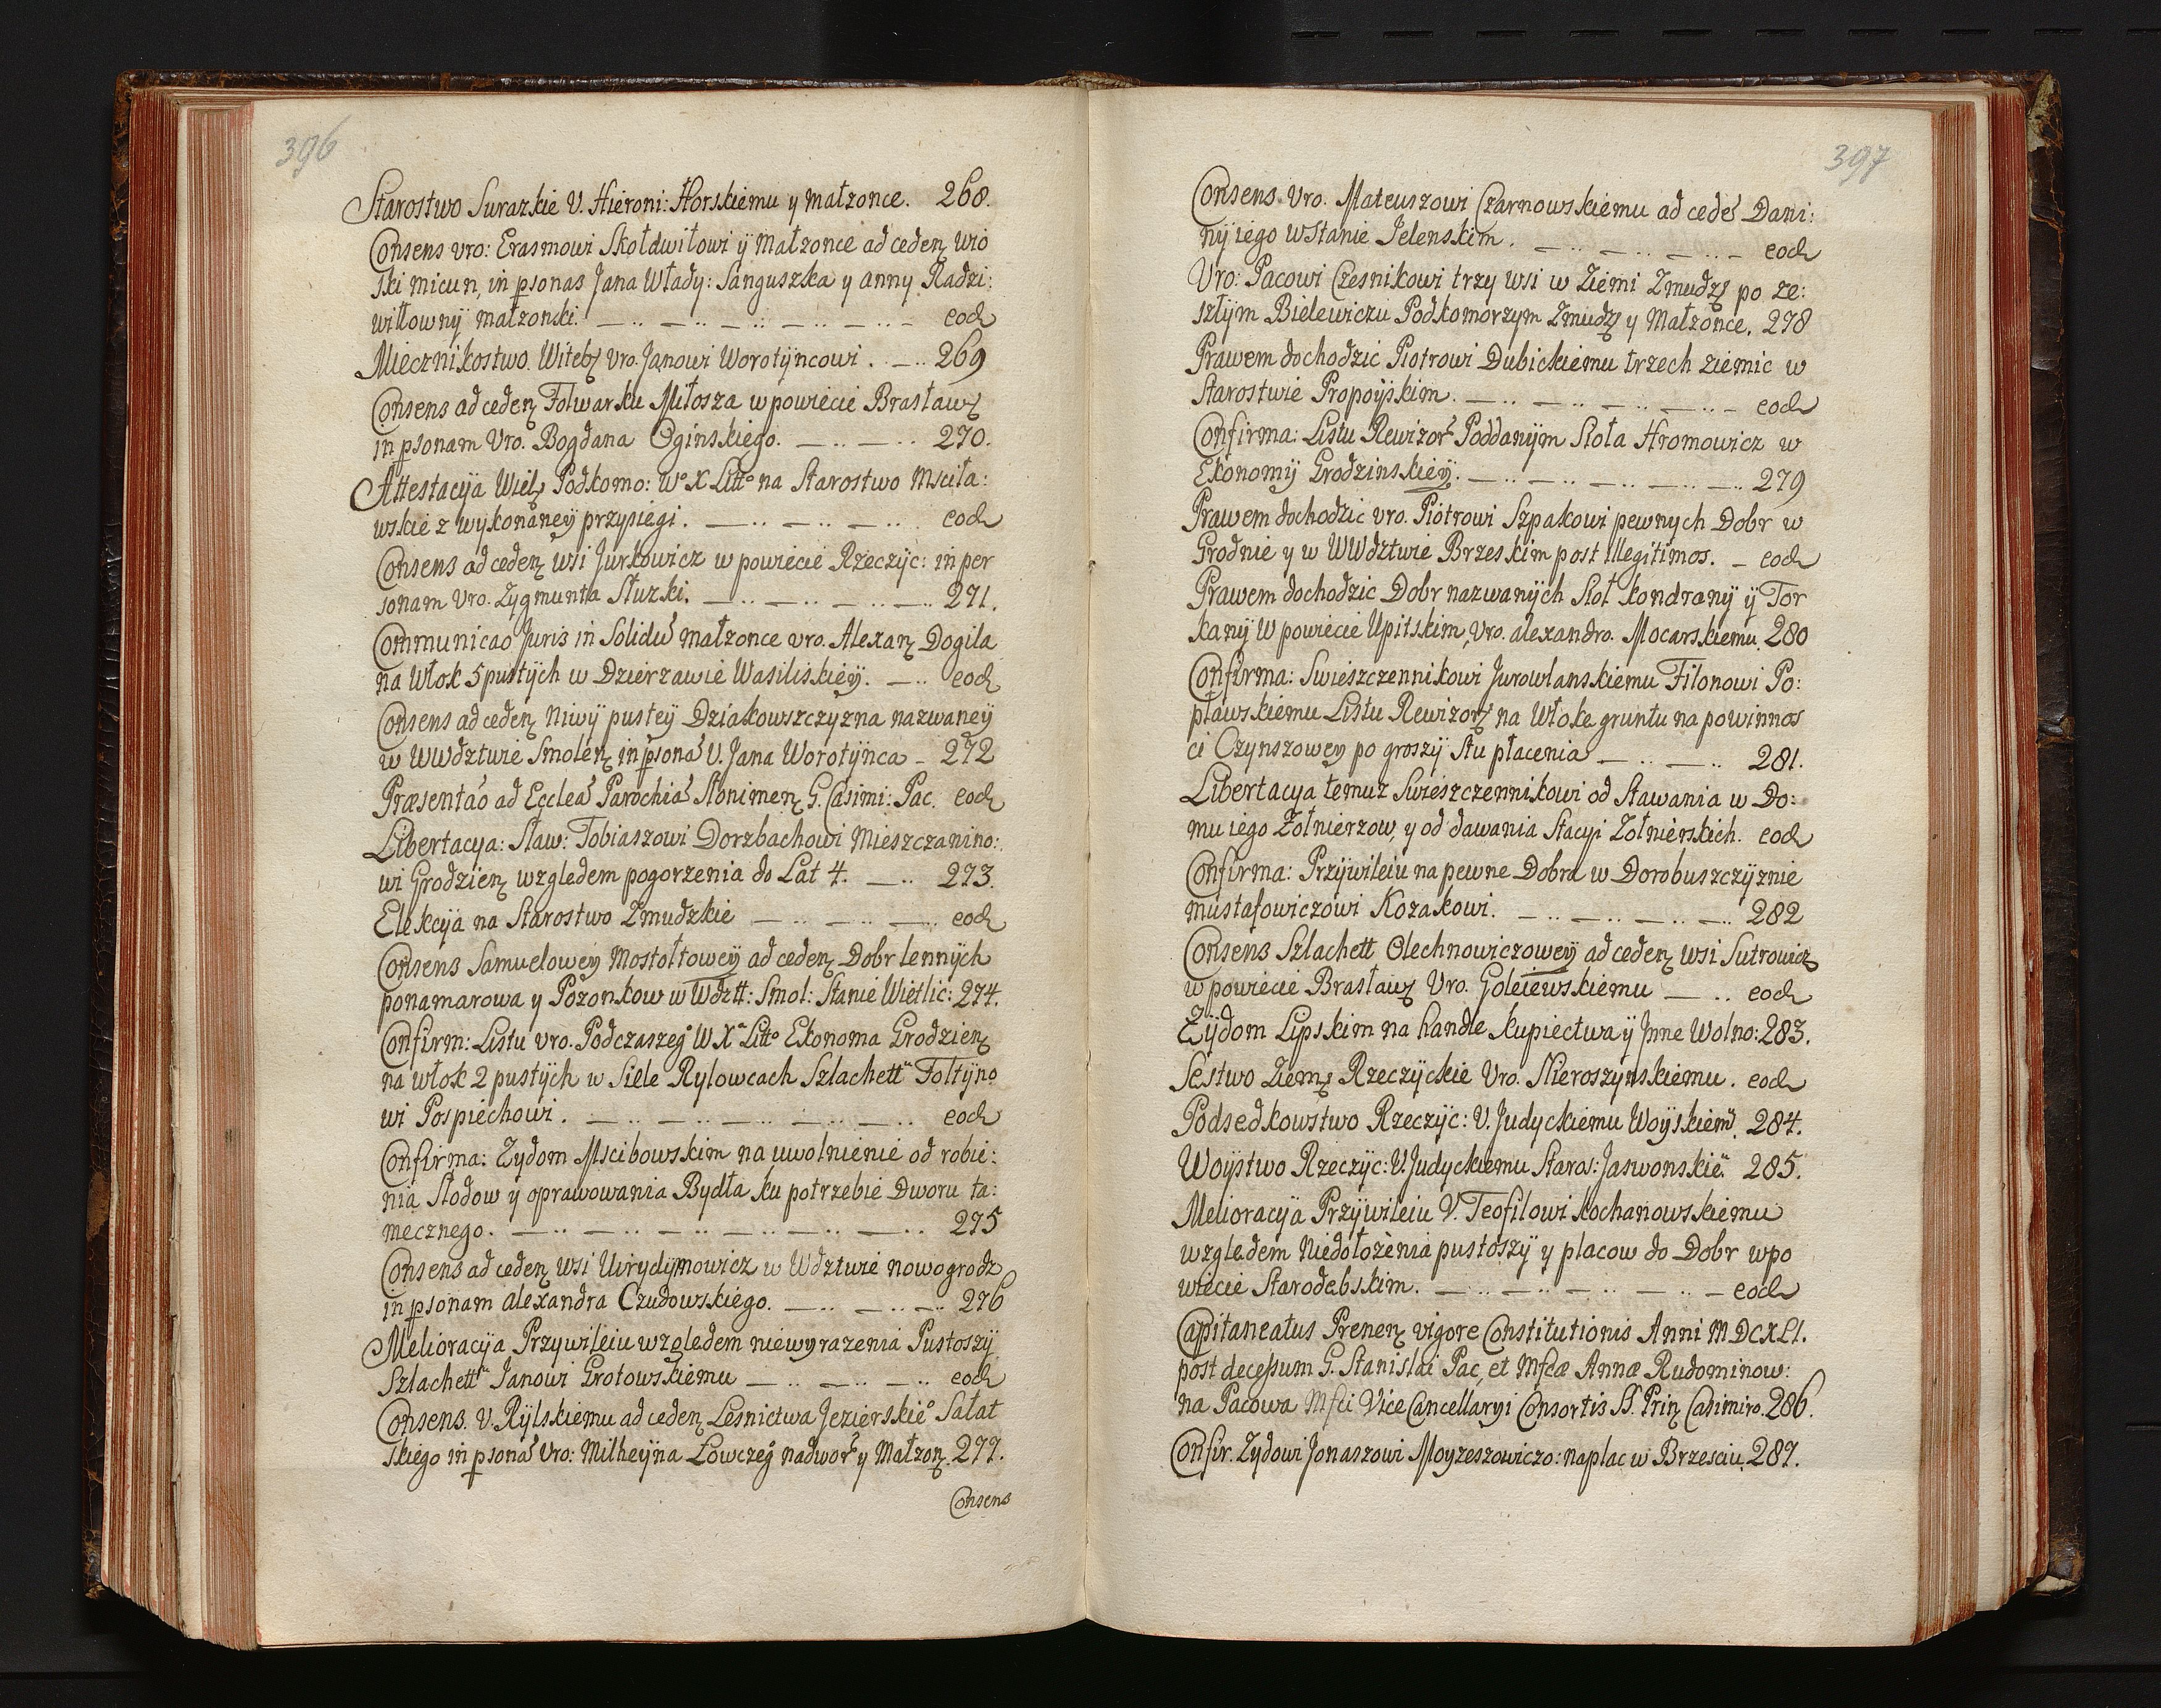 396
Starostwo Surazkie V. Hieroni: Horskiemu y małzonce. 268.
Consens vro: Erasmowi Skołdwiłowi ÿ Małzonce ad ceden wio
ski micun, in psonas Jana Włady: Sanguszka y anny Radzi:
wiłłownÿ małzonki. — .. — .. — .. — .. — .. – eod
Miecznikostwo. Witeb vro. Janowi Worotÿncowi . — .. 269
Consens ad ceden Folwarku Miłosza w powiecie Brasław
in psonam Vro. Bogdana Oginskiego. — .. — .. 270.
Attestacÿa Wiel Podkomo: Wº X Littº na Starostwo Mscita:
wskie z wykonaneÿ przysiegi . — .. — .. — .. eod
Consens ad ceden wsi Jurkowicz w powiecie Rzeczÿc: in per
sonam Vro. Zygmunta Słuzki. — .. — .. — .. — .. 271.
Communicao Juris in Solidu małzonce vro. Alexan Dogila
na Włok 5 pustÿch w Dzierzawie Wasiliskieÿ. — .. eod
Consens ad ceden Niwÿ pusteÿ Dziakowszczyzna nazwaneÿ
w WWdztwie Smolen in psona V. Jana Worotÿnca – 272
Præsentao ad Ecclea Parochia Słonimen G. Casimi: Pac. eod
Libertacya: Sław: Tobiaszowi Dorzbachowi Mieszczanino:
wi Grodzien wzgledem pogorzenia do Lat 4. — .. 273.
Elekcÿa na Starostwo Zmudzkie — .. — .. — .. eod
Consens Samuelowey Mostołtoweÿ ad ceden Dobr lennÿch
ponamarowa y Pozonkow w Wdztt: Smol: Stanie Wietlic: 274.
Confirm: Listu vro. Podczaszegº W Xª Littº Ekonoma Grodzien
na włok 2 pustÿch w Siele Rylowcach Szlachett Foltÿno
wi Pospiechowi . — .. — .. — .. — .. — .. eod
Confirma: Zydom Mscibowskim na uwolnienie od robie:
nia Słodow ÿ oprawowania Bydła ku potrzebie Dworu ta:
mecznego. — .. — .. — .. — .. — .. — .. 275
Consens ad ceden wsi Uwrydÿmowicz w Wdztwie nowogrodz
in psonam alexandra Czudowskiego. — .. — .. — .. 276
Melioracÿa Przywileiu wzgledem niewyrazenia Pustoszÿ
Szlachett Janowi Grotowskiemu — .. — .. — .. eod
Consens. V. Rÿlskiemu ad ceden Lesnictwa Jezierskiº Sałat
skiego in psona Vro: Milheÿna Łowczegº nadwor y Małzon. 277.
Consens
397
Consens Vro. Mateuszowi Czarnowskiemu ad cede Dani:
nÿ iego w Stanie Jelenskim . — .. — .. — .. – eod
Vro: Pacowi Czesnikowi trzy wsi w Ziemi Zmudz po ze:
szłÿm Bielewiczu Podkomorzym Zmudz y Małzonce. 278
Prawem dochodzic Piotrowi Dubickiemu trzech ziemic w
Starostwie Propoÿskim. — .. — .. — .. — .. – eod
Confirma: Listu Rewizor Poddanÿm Sioła Hromowicz w
Ekonomÿ Grodzinskieÿ. — .. — .. — .. — .. — .. 279
Prawem dochodzic vro. Piotrowi Szpakowi pewnych Dobr w
Grodnie y w WWdztwie Brzeskim post illegitimos. – eod
Prawem dochodzic Dobr nazwanÿch Sioł kondranÿ ÿ Tor
kanÿ W powiecie Upitskim, Vro. alexandro. Mocarskiemu. 280
Confirma: Swieszczennikowi Jurowlanskiemu Filonowi Po:
pławskiemu Listu Rewizor na Włoke gruntu na powinnos
ci Czynszowey po groszÿ stu płacenia — .. — .. 281.
Libertacya temuz Swieszczennikowi od Stawania w Do:
mu iego Zołnierzow, y od dawania Stacyi Zołnierskich. eod
Confirma: Przÿwileiu na pewne Dobra w Dorobuszczÿznie
mustafowiczowi Kozakowi. — .. — .. — .. — .. 282
Consens Szlachett Olechnowiczoweÿ ad ceden wsi Sutrowicz
w powiecie Brasław Vro. Goleiewskiemu — .. eod
Zÿdom Lipskim na handle kupiectwa ÿ Inne Wolno: 283.
Sestwo Ziem Rzeczÿckie Vro. Nieroszynskiemu . eod
Podsedkowstwo Rzeczÿc: V. Judyckiemu Woÿskiem. 284.
Woÿstwo Rzeczÿc: V. Judyckiemu Staros: Jaswonskie. 285.
Melioracÿa Przÿwileiu V. Teofilowi Kochanowskiemu
wzgledem Niedołozenia pustoszÿ y placow do Dobr w po
wiecie Starodebskim. — .. — .. — .. — .. – eod
Capitaneatus Prenen vigore Constitutionis Anni MDCXLI.
post decessum G. Stanislai Pac, et Mfcæ Annæ Rudominow:
na Pacowa Mfci Vice Cancellaryi Consortis G. Prin Casimiro. 286.
Confir. Zydowi Jonaszowi Moyzeszowiczo: na plac w Brzesciu. 287.